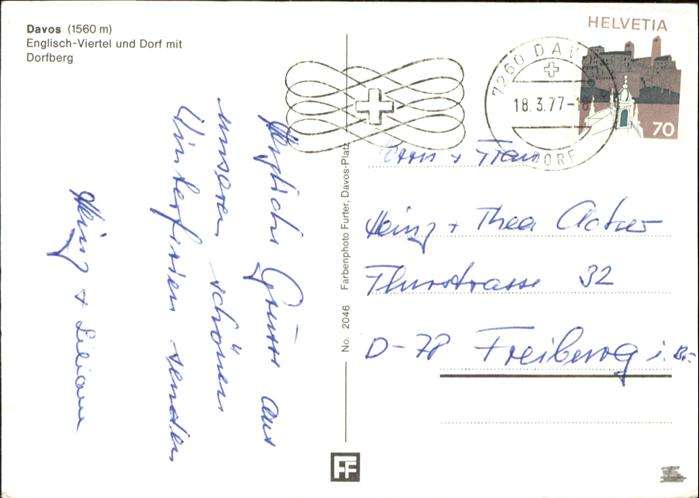 Davos (1560 m)
Englisch-Viertel und Dorf mit
Dorfberg
HELVETIA
70
7260 DAV
18.3.77-18
DORF
Herzliche Grüsse aus
unseren schönen
Winterferien senden
Heinz + Liliane
No. 2046 Farbenphoto Furter, Davos-Platz
Herrn + Frau
Heinz + Thea
Thurstrasse 32
D-78 Freiburg i. Br.
FF